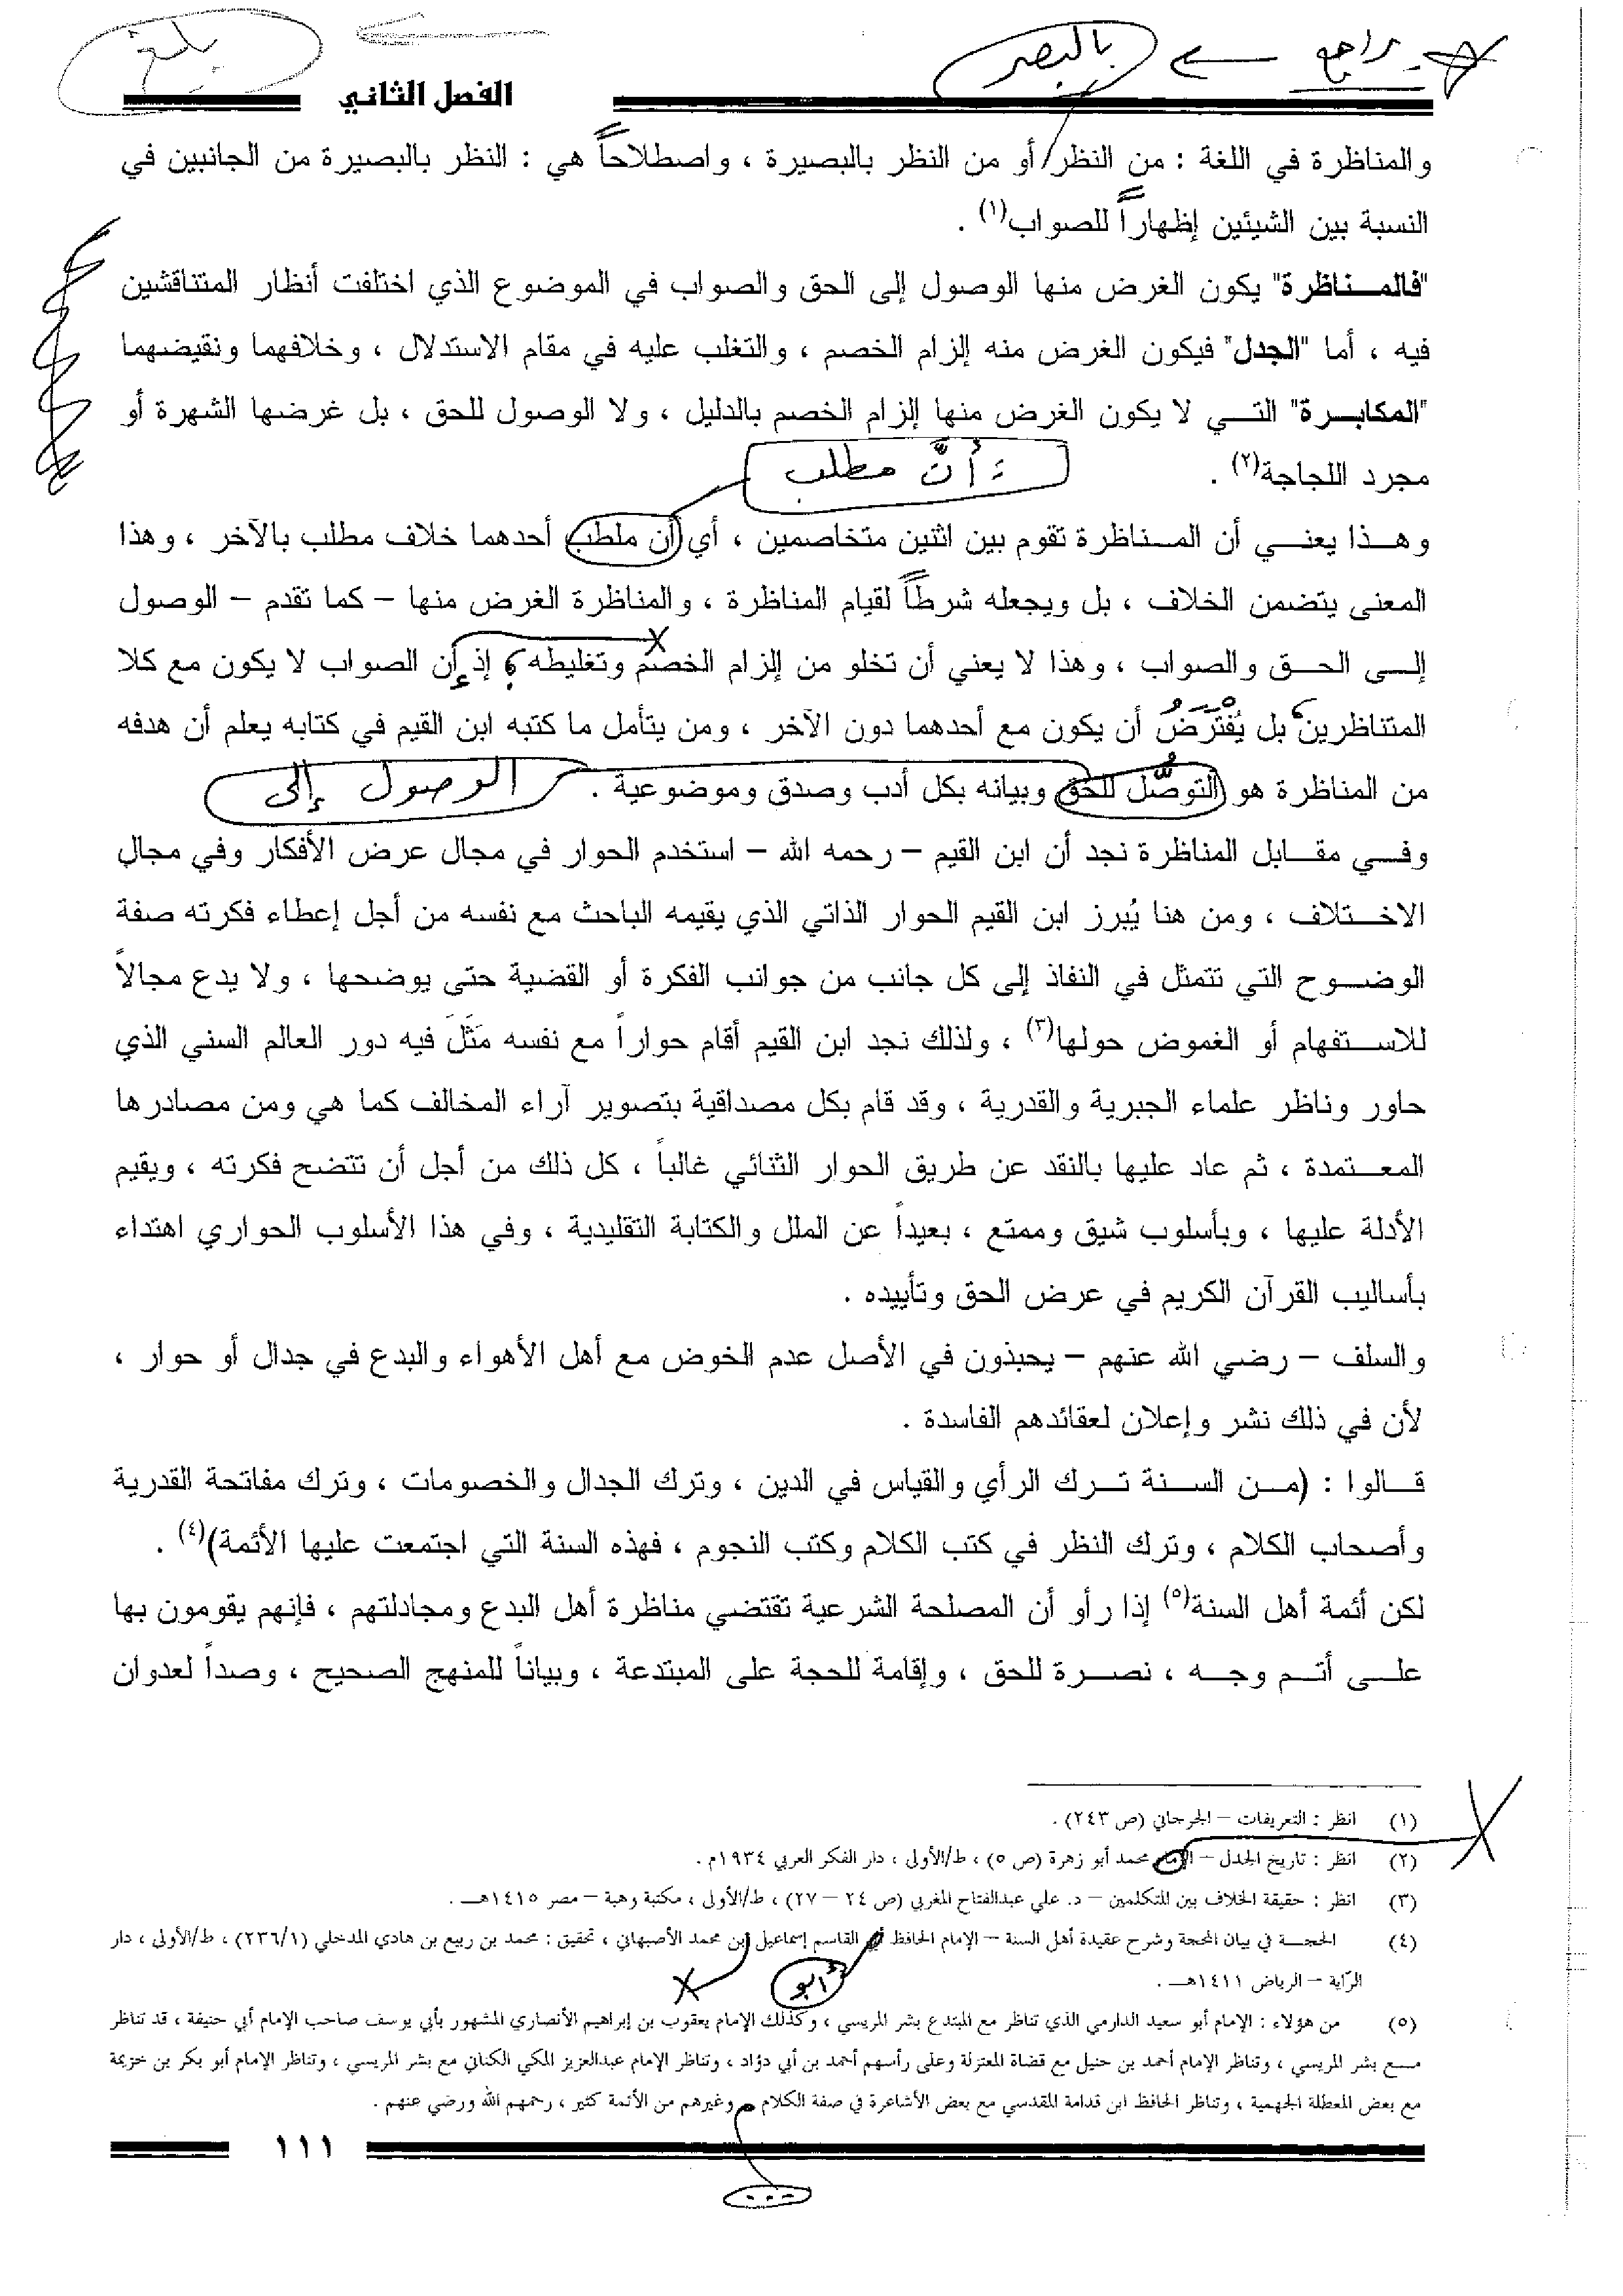 يراجع
بالبصر
الفصل الثاني
والمناظرة في اللغة : من النظر/أو من النظر بالبصيرة ، واصطلاحاً هي : النظر بالبصيرة من الجانبين في
النسبة بين الشيئين إظهاراً للصواب(١) .
"فالمـناظرة" يكون الغرض منها الوصول إلى الحق والصواب في الموضوع الذي اختلفت أنظار المتناقشين
فيه ، أما "الجدل" فيكون الغرض منه إلزام الخصم ، والتغلب عليه في مقام الاستدلال ، وخلافهما ونقيضهما
"المكابـرة" التـي لا يكون الغرض منها إلزام الخصم بالدليل ، ولا الوصول للحق ، بل غرضها الشهرة أو
مجرد اللجاجة(٢) .
: أنَّ مطلب
وهـذا يعنـي أن المـناظرة تقوم بين اثنين متخاصمين ، أي أن ملطب أحدهما خلاف مطلب بالآخر ، وهذا
المعنى يتضمن الخلاف ، بل ويجعله شرطاً لقيام المناظرة ، والمناظرة الغرض منها – كما تقدم – الوصول
إلـى الحـق والصواب ، وهذا لا يعني أن تخلو من إلزام الخصم وتغليطه ؛ إذ إن الصواب لا يكون مع كلا
المتناظرين بل يُفْتَرَضُ أن يكون مع أحدهما دون الآخر ، ومن يتأمل ما كتبه ابن القيم في كتابه يعلم أن هدفه
من المناظرة هو التوصُّل للحق وبيانه بكل أدب وصدق وموضوعية .
الوصول إلى
وفـي مقـابل المناظرة نجد أن ابن القيم – رحمه الله – استخدم الحوار في مجال عرض الأفكار وفي مجال
الاخـتلاف ، ومن هنا يُبرز ابن القيم الحوار الذاتي الذي يقيمه الباحث مع نفسه من أجل إعطاء فكرته صفة
الوضـوح التي تتمثل في النفاذ إلى كل جانب من جوانب الفكرة أو القضية حتى يوضحها ، ولا يدع مجالاً
للاسـتفهام أو الغموض حولها(٣) ، ولذلك نجد ابن القيم أقام حواراً مع نفسه مَثَلَ فيه دور العالم السني الذي
حاور وناظر علماء الجبرية والقدرية ، وقد قام بكل مصداقية بتصوير آراء المخالف كما هي ومن مصادرها
المعـتمدة ، ثم عاد عليها بالنقد عن طريق الحوار الثنائي غالباً ، كل ذلك من أجل أن تتضح فكرته ، ويقيم
الأدلة عليها ، وبأسلوب شيق وممتع ، بعيداً عن الملل والكتابة التقليدية ، وفي هذا الأسلوب الحواري اهتداء
بأساليب القرآن الكريم في عرض الحق وتأييده .
والسلف – رضي الله عنهم – يحبذون في الأصل عدم الخوض مع أهل الأهواء والبدع في جدال أو حوار ،
لأن في ذلك نشر وإعلان لعقائدهم الفاسدة .
قـالوا : (مـن السـنة تـرك الرأي والقياس في الدين ، وترك الجدال والخصومات ، وترك مفاتحة القدرية
وأصحاب الكلام ، وترك النظر في كتب الكلام وكتب النجوم ، فهذه السنة التي اجتمعت عليها الأئمة)(٤) .
لكن أئمة أهل السنة(٥) إذا رأو أن المصلحة الشرعية تقتضي مناظرة أهل البدع ومجادلتهم ، فإنهم يقومون بها
علـى أتـم وجـه ، نصـرة للحق ، وإقامة للحجة على المبتدعة ، وبياناً للمنهج الصحيح ، وصداً لعدوان
(١) انظر : التعريفات – الجرجاني (ص ٢٤٣) .
(٢) انظر : تاريخ الجدل – الإمام محمد أبو زهرة (ص ٥) ، ط/الأولى ، دار الفكر العربي ١٩٣٤م .
(٣) انظر : حقيقة الخلاف بين المتكلمين – د. علي عبدالفتاح المغربي (ص ٢٤ – ٢٧) ، ط/الأولى ، مكتبة وهبة – مصر ١٤١٥هـ .
(٤) الحجـة في بيان المحجة وشرح عقيدة أهل السنة – الإمام الحافظ أبي القاسم إسماعيل ابن محمد الأصبهاني ، تحقيق : محمد بن ربيع بن هادي المدخلي (٢٣٦/١) ، ط/الأولى ، دار
الرّاية – الرياض ١٤١١هـ .
أبو
(٥) من هؤلاء : الإمام أبو سعيد الدارمي الذي تناظر مع المبتدع بشر المريسي ، وكذلك الإمام يعقوب بن إبراهيم الأنصاري المشهور بأبي يوسف صاحب الإمام أبي حنيفة ، قد تناظر
مـع بشر المريسي ، وتناظر الإمام أحمد بن حنبل مع قضاة المعتزلة وعلى رأسهم أحمد بن أبي دؤاد ، وتناظر الإمام عبدالعزيز المكي الكناني مع بشر المريسي ، وتناظر الإمام أبو بكر بن خزيمة
مع بعض المعطلة الجهمية ، وتناظر الحافظ ابن قدامة المقدسي مع بعض الأشاعرة في صفة الكلام وغيرهم من الأئمة كثير ، رحمهم الله ورضي عنهم .
١١١